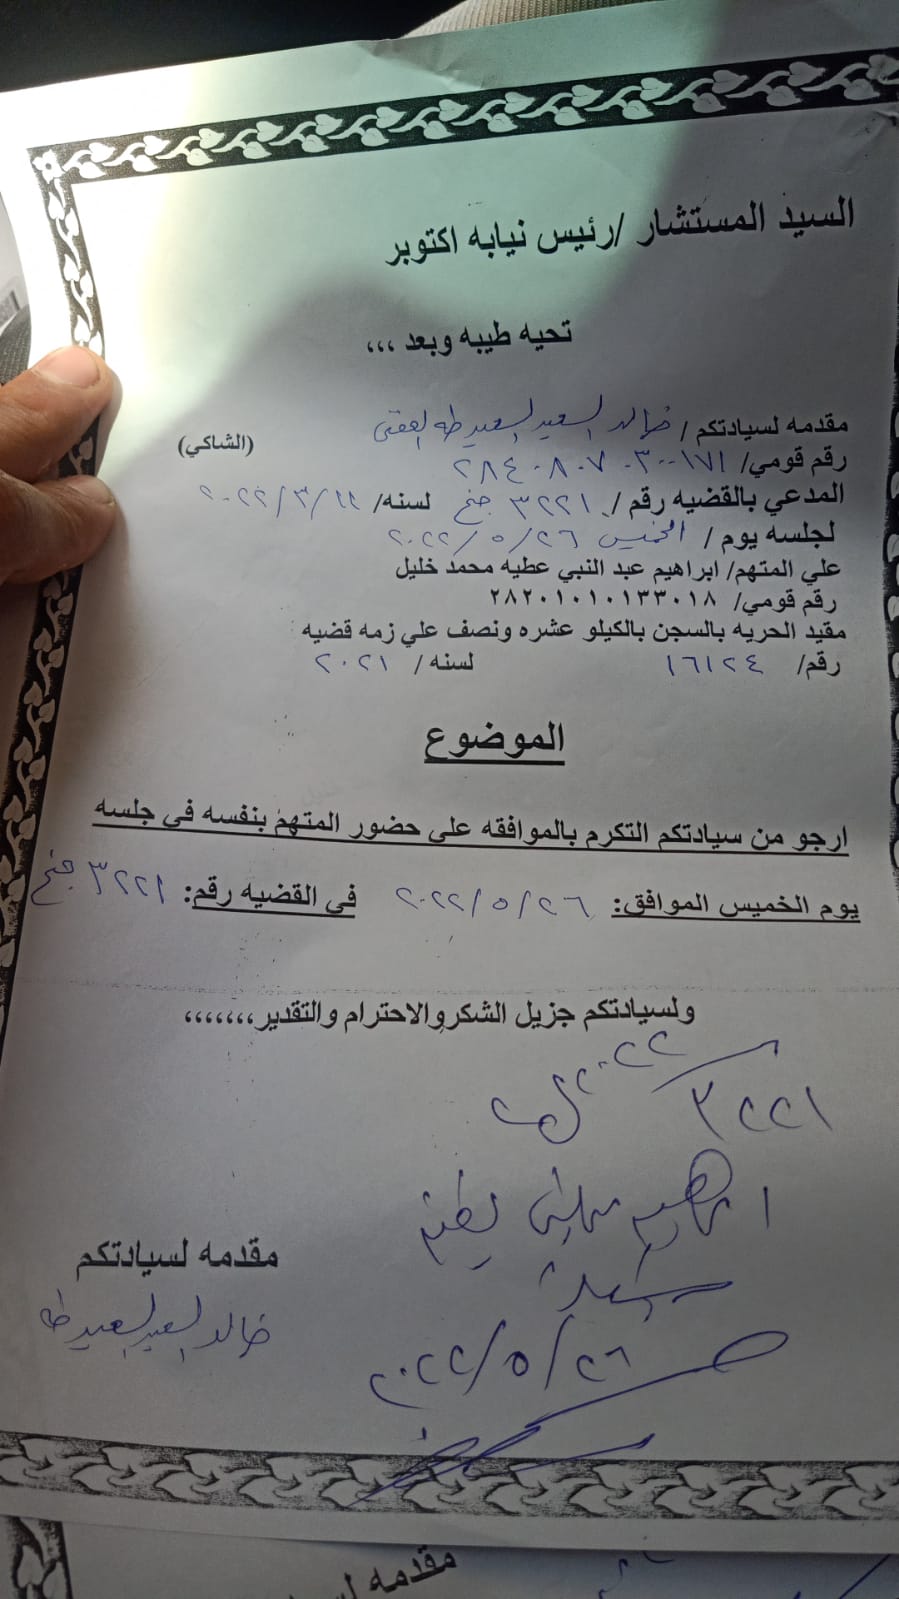 السيد المستشار /رئيس نيابه اكتوبر
تحيه طيبه وبعد ،،،
مقدمه لسيادتكم / خالد السعيد السعيد طه الفقى (الشاكي)
رقم قومي/ ٢٨٤٠٨٠٧٠٣٠٠١٧١
المدعي بالقضيه رقم / ٣٢٢١ جنح لسنه/ ٢٠٢٢/٣/
لجلسه يوم / الخميس ٢٠٢٢/٥/٢٦
علي المتهم/ ابراهيم عبد النبي عطيه محمد خليل
رقم قومي/ ٢٨٢٠١٠١٠١٣٣٠١٨
مقيد الحريه بالسجن بالكيلو عشره ونصف علي زمه قضيه
رقم/ ١٦١٢٤ لسنه / ٢٠٢١
الموضوع
ارجو من سيادتكم التكرم بالموافقه على حضور المتهم بنفسه في جلسه
يوم الخميس الموافق: ٢٠٢٢/٥/٢٦ في القضيه رقم: ٣٢٢١ جنح
ولسيادتكم جزيل الشكروالاحترام والتقدير،،،،،،،
٣٢٢١ / ٢٠٢٢
ابراهيم
مقدمه لسيادتكم
خالد السعيد السعيد طه
٢٠٢٢/٥/٢٦
مقدمه